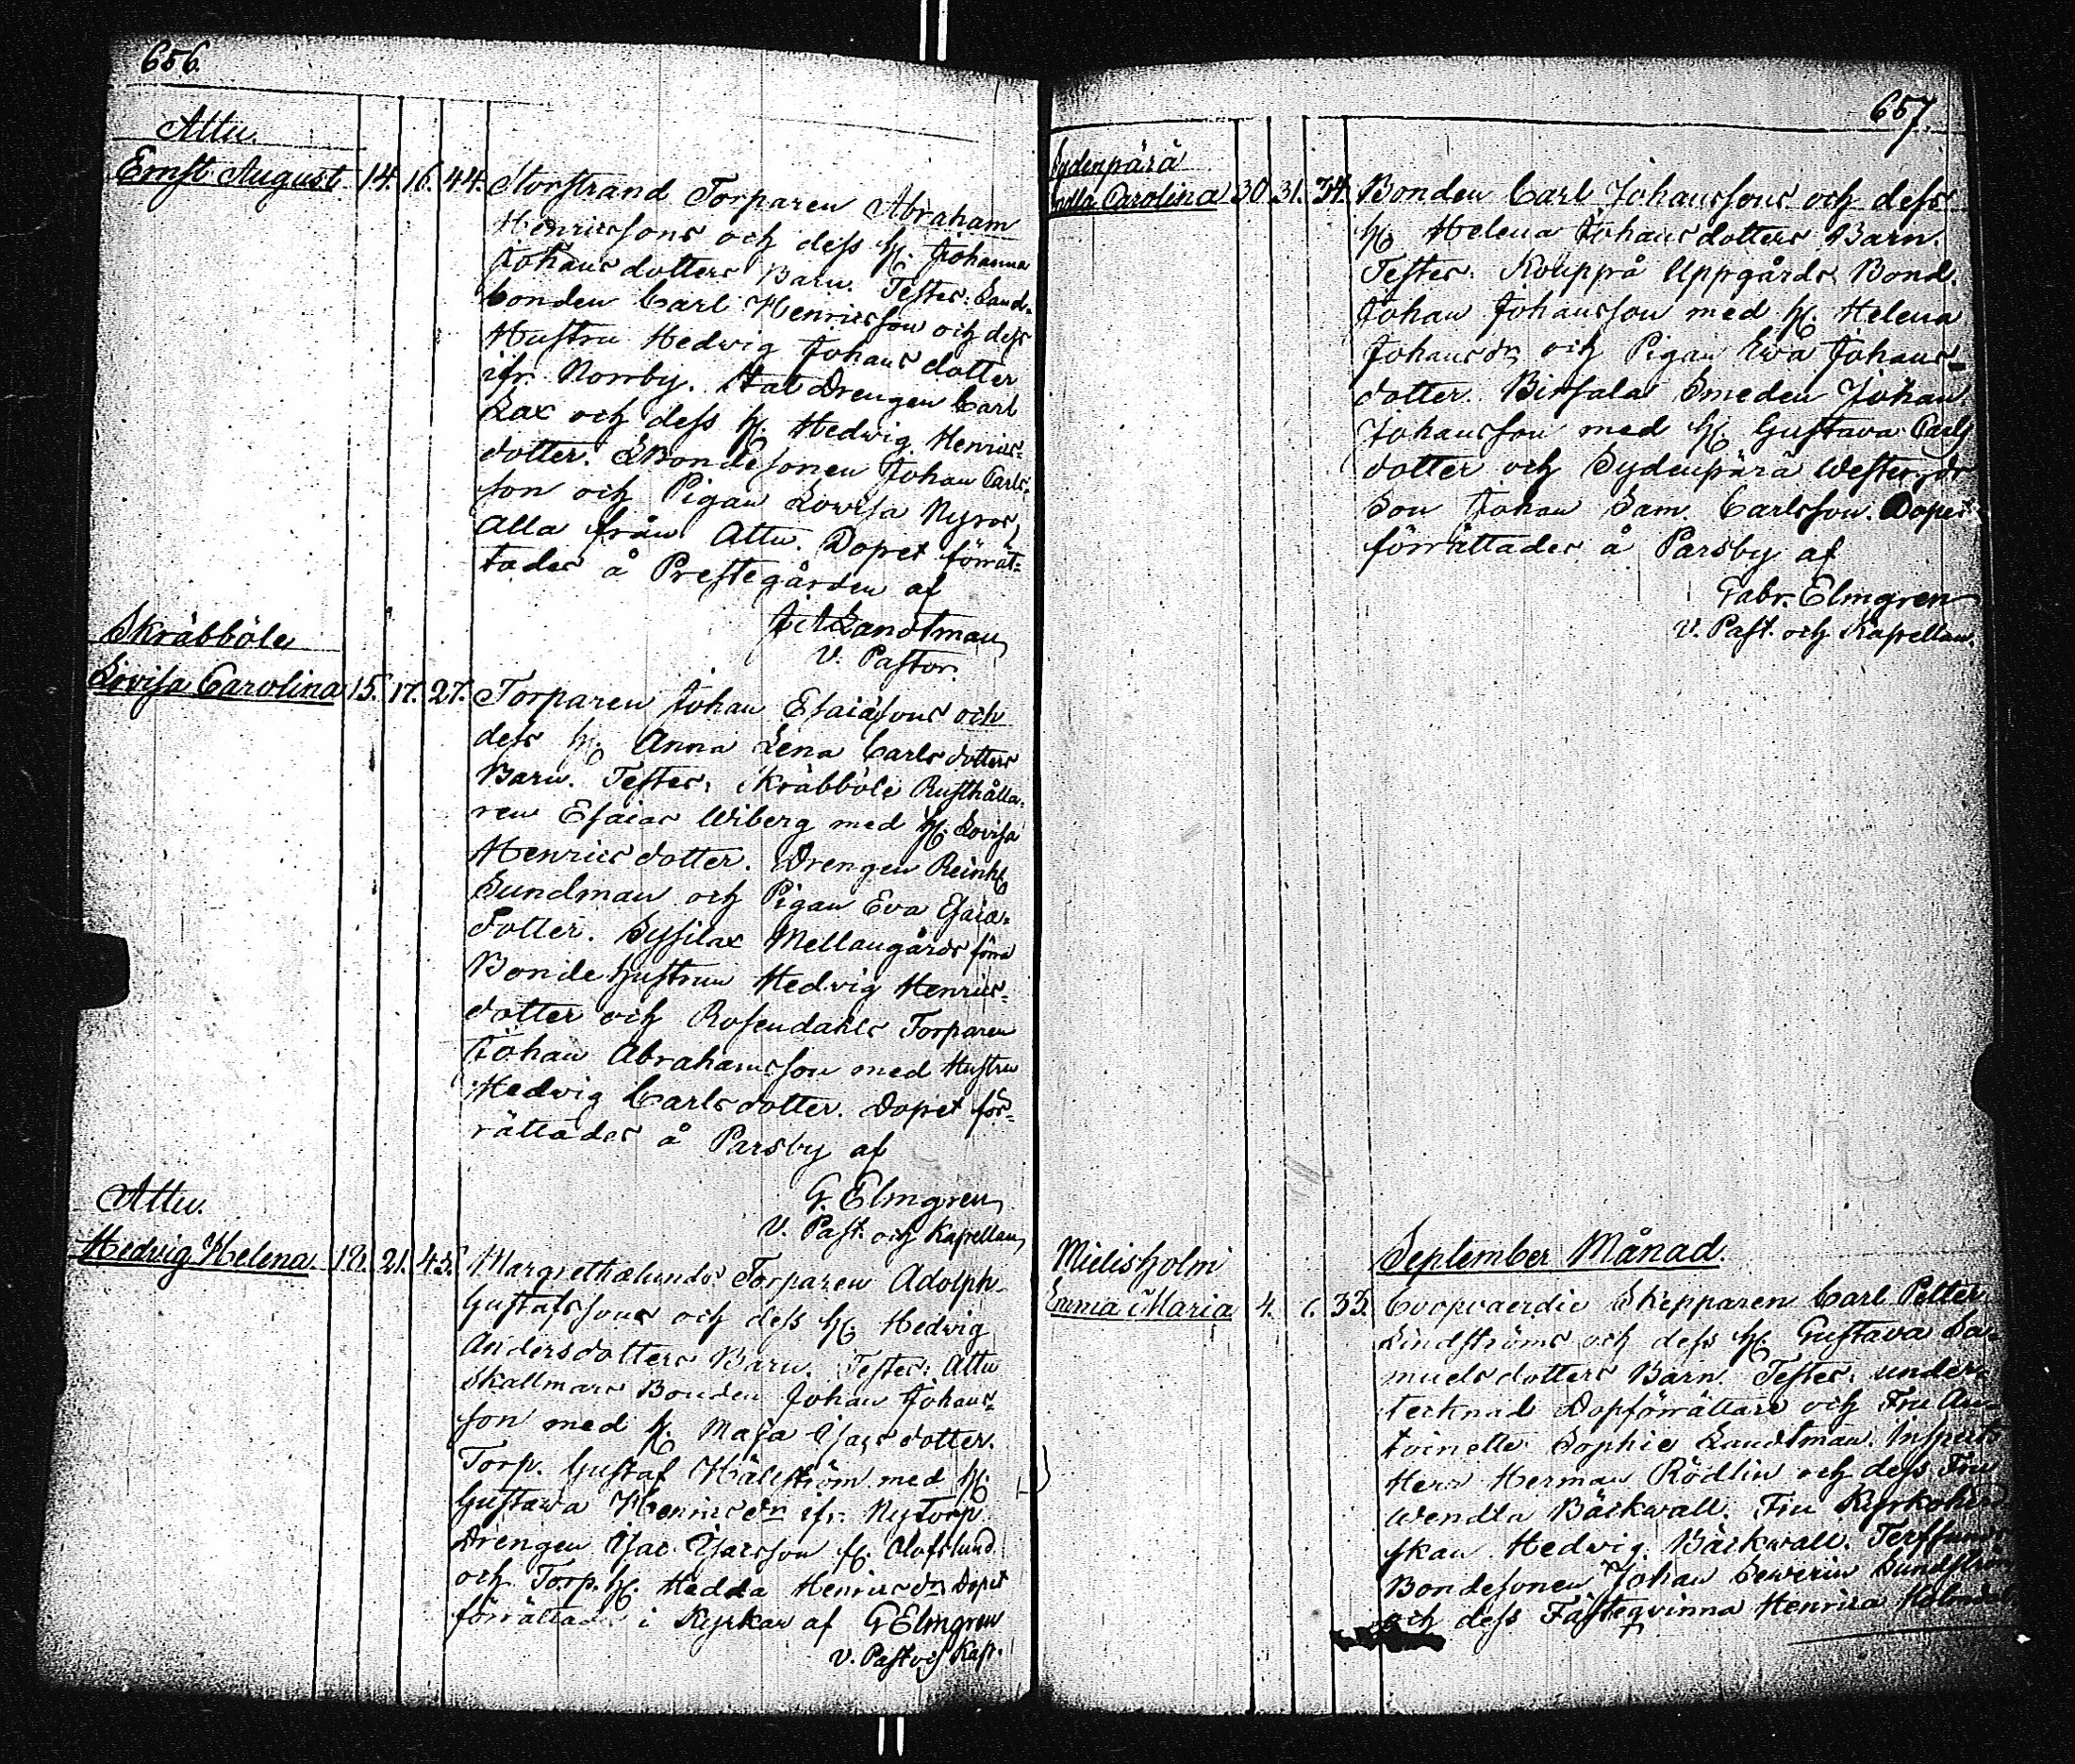 656.
Attu.
Ernst August 14. 16. 44. Storstrand Torparen Abraham
Henricssons och dess H. Johanna
Johansdotters Barn. Testes: Land-
bonden Carl Henricsson och dess
Hustru Hedvig Johansdotter
ifr. Norrby. Stat Drengen Carl
Lax och dess H. Hedvig Henrics-
dotter. Bondesonen Johan Carls-
son och Pigan Lovisa Nyroos,
Alla från Attu. Dopet förrät-
tades å Prestegården af
Landtman
V. Pastor.
Skräbböle
Lovisa Carolina 15. 17. 27. Torparen Johan Esaiasons och
dess H. Anna Lena Carlsdotters
Barn. Testes: Skräbböle Rusthålla-
ren Esaias Wiberg med H. Lovisa
Henricsdotter. Drengen Reinh.
Sundman och Pigan Eva Esaia-
dotter. Sysilax Mellangårds förra
Bondehustrun Hedvig Henrics-
dotter och Rosendahls Torparen
Johan Abrahamsson med Hustru
Hedvig Carlsdotter. Dopet för-
rättades å Parsby af
G. Elmgren
V. Past. och Kapellan
Attu.
Hedvig Helena. 18. 21. 45. Margrethælunds Torparen Adolph
Gustafssons och dess H. Hedvig
Andersdotters Barn. Testes: Attu
Skallmars Bonden Johan Johans-
son med H. Maja Isacsdotter.
Torp. Gustaf Hälström med H.
Gustawa Henricsdr ifr. Nytorp
Drengen Isac Isacsson fr. Olofslund
och Torp. H. Hedda Henricsdr Dopet
förrättades i Kyrkan af G Elmgren
V. Past och Kap.
657.
Sydenpärä
Carolina 30 31. 34. Bonden Carl Johanssons och dess
H. Helena Johansdotters Barn.
Testes: Kouppå Uppgårds Bond.
Johan Johansson med H. Helena
Johansdr och Pigan Ewa Johans-
dotter. Birsala Smeden Johan
Johansson med H. Gustava Carls
dotter och Sydenpärä Westergårds
Son Johan Sam. Carlsson. Dopet
förrättades å Parsby af
Gabr. Elmgren
V. Past. och Kapellan.
September Månad.
Mielisholm
Emma Maria 4. 6. 33. Coopvaerdie Skepparen Carl Petter
Lindströms och dess H. Gustava Sa-
muelsdotters Barn. Testes: under-
tecknad Dopförrättare och Fru An-
toinette Sophie Landtman. Inspect.
Herr Herman Rödlin och dess Fru
Wendla Bäckwall. Fru Kyrkoher
skan Hedvig Bäckwall.
Bondesonen Johan Sewerin Sundström
och dess Fästeqvinna Henrica